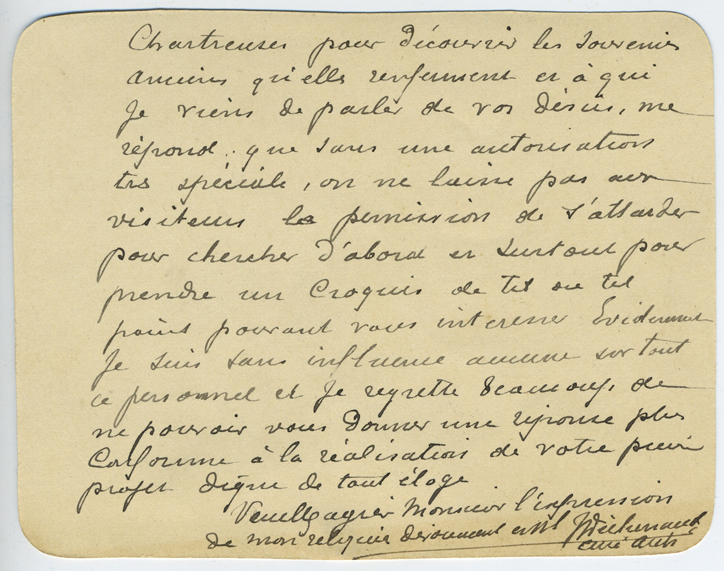 Chartreuses pour découvrir les souvenirs
anciens qu'elles renferment et à qui
je viens de parler de vos désirs, me
répond que sans une autorisation
très spéciale, on ne laisse pas aux
visiteurs la permission de s'attarder
pour chercher d'abord et surtout pour
prendre un croquis de tel ou tel
point pouvant vous intéresser Evidemment
je suis sans influence aucune sur tout
ce personnel et je regrette beaucoup de
ne pouvoir vous donner une réponse plus
conforme à la réalisation de votre pieux
projet digne de tout éloge
Veuillez agréer Monsieur l'expression
de mon religieux dévouement
curé